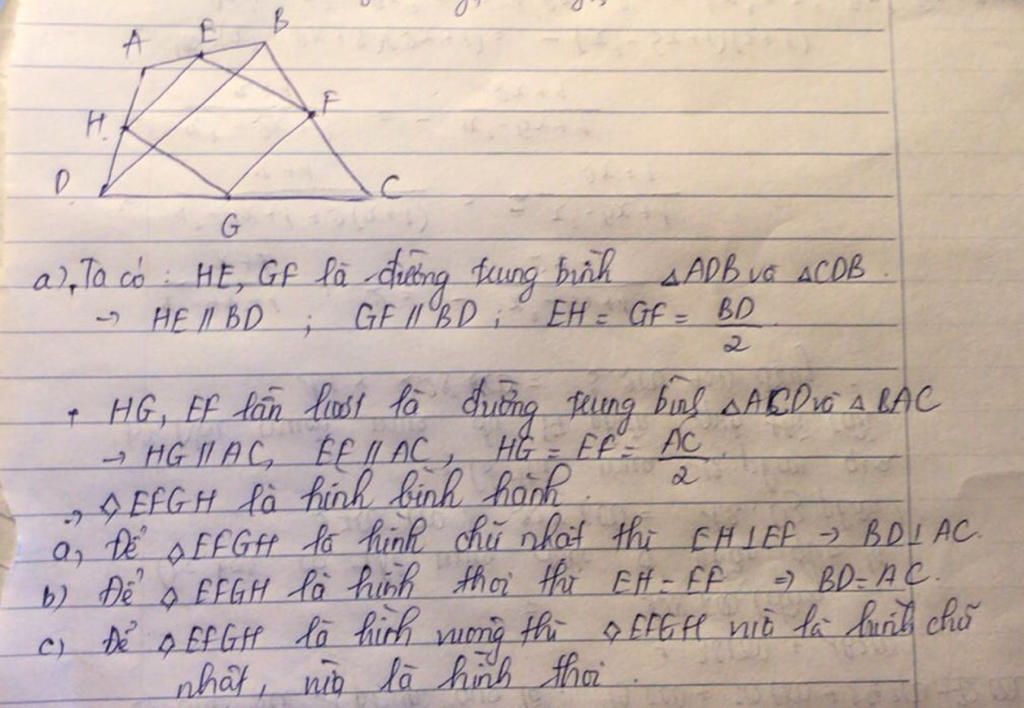 A E B
H F
D G C
a), Ta có : HE, GF là đường trung bình △ADB và △CDB.
→ HE // BD ; GF // BD ; EH = GF = BD/2.
+ HG, EF lần lượt là đường trung bình △ACD và △BAC
→ HG // AC, EF // AC, HG = EF = AC/2.
→ ◇EFGH là hình bình hành.
a, Để ◇EFGH là hình chữ nhật thì EH⊥EF → BD⊥AC.
b) Để ◇EFGH là hình thoi thì EH = EF ⇒ BD = AC.
c) Để ◇EFGH là hình vuông thì ◇EFGH vừa là hình chữ
nhật, vừa là hình thoi.